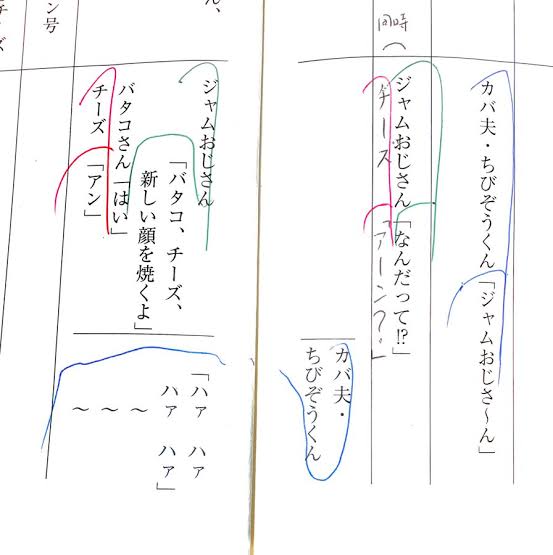 カバ夫・ちびぞうくん「ジャムおじさ～ん」
同時
ジャムおじさん「なんだって!?」
チーズ「アーン?」
カバ夫・
ちびぞうくん
「ハァ ハァ
ハァ ハァ」
～
～
～
ん、
ジャムおじさん
「バタコ、チーズ、
新しい顔を焼くよ」
バタコさん「はい」
チーズ「アン」
ン号
チーズ